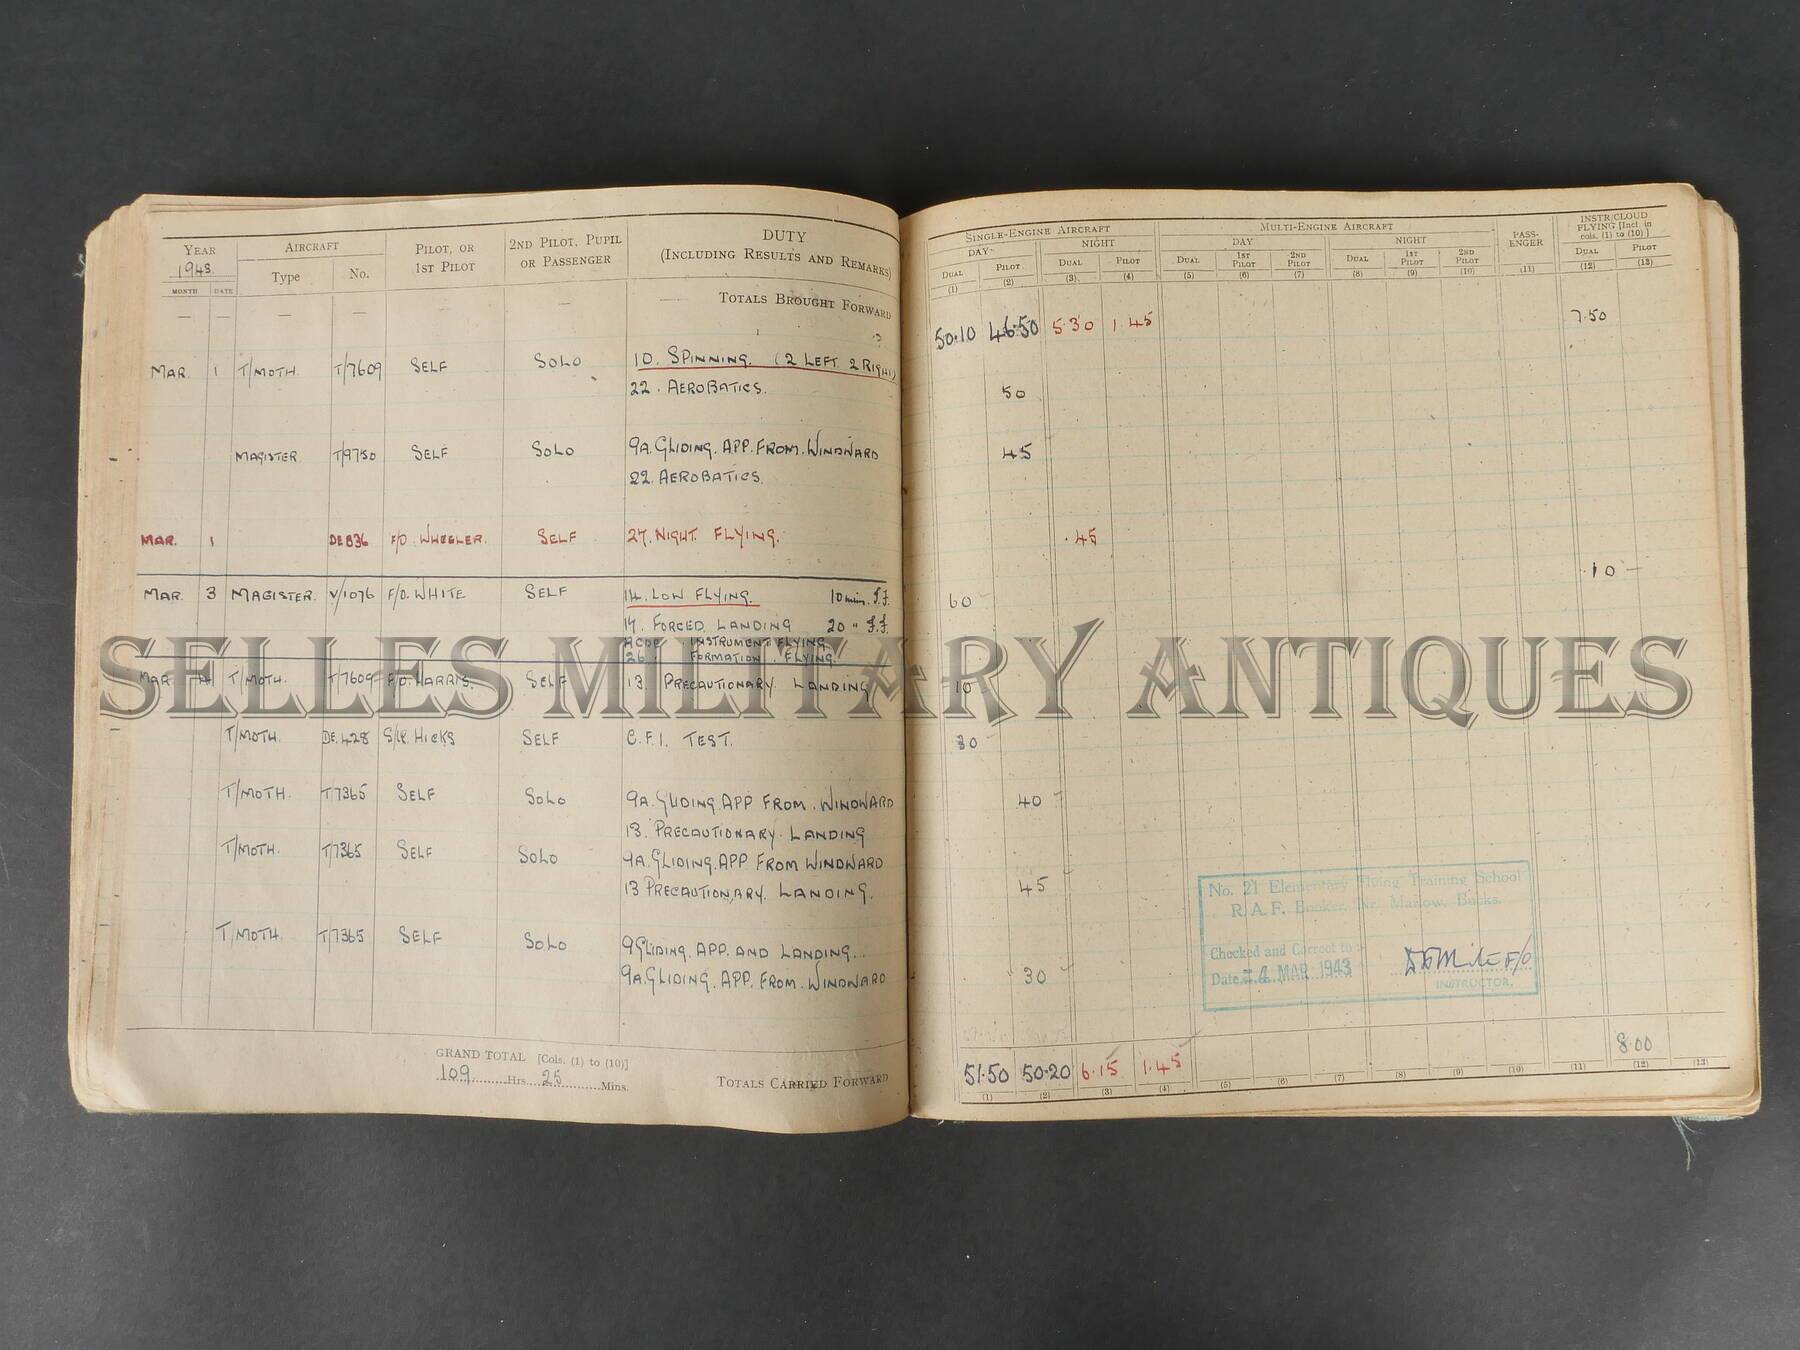 YEAR AIRCRAFT PILOT, OR 1ST PILOT 2ND PILOT, PUPIL OR PASSENGER DUTY (INCLUDING RESULTS AND REMARKS)
1943. Type No.
MONTH DATE
— — — — — — — TOTALS BROUGHT FORWARD
MAR. 1 T/MOTH. T/7609 SELF SOLO 10. SPINNING. (2 LEFT 2 RIGHT)
22. AEROBATICS.
MAGISTER T/9750 SELF SOLO 9A. GLIDING. APP. FROM. WINDWARD
22. AEROBATICS.
MAR. 1 DE836 F/O. WHEELER. SELF 27. NIGHT. FLYING.
MAR. 3 MAGISTER. V/1076 F/O. WHITE SELF 14. LOW FLYING. 10 min. I.F.
17. FORCED LANDING 20 " I.F.
INSTRUMENT FLYING
26. FORMATION. FLYING.
MAR 4 T/MOTH. T/7609 F/O. HARRIS. SELF 13. PRECAUTIONARY. LANDING
T/MOTH. DE.428 S/LR. HICKS SELF C.F.I. TEST.
T/MOTH. T7365 SELF SOLO 9A. GLIDING. APP FROM. WINDWARD
13. PRECAUTIONARY. LANDING
T/MOTH. T/7365 SELF SOLO 9A. GLIDING. APP FROM WINDWARD
13 PRECAUTIONARY. LANDING.
T/MOTH. T/7365 SELF SOLO 9 GLIDING. APP. AND LANDING..
9A. GLIDING. APP. FROM. WINDWARD
GRAND TOTAL [Cols. (1) to (10)]
109 Hrs. 25 Mins. TOTALS CARRIED FORWARD
SINGLE-ENGINE AIRCRAFT MULTI-ENGINE AIRCRAFT PASS-ENGER INSTR/CLOUD FLYING [Incl. in cols. (1) to (10)]
DAY NIGHT DAY NIGHT
DUAL PILOT DUAL PILOT DUAL 1ST PILOT 2ND PILOT DUAL 1ST PILOT 2ND PILOT DUAL PILOT
(1) (2) (3) (4) (5) (6) (7) (8) (9) (10) (11) (12) (13)
50.10 46.50 5.30 1.45 7.50
50
45
.45
60 .10
10
30
40
45
30
No. 21 Elementary Flying Training School
R.A.F. Booker, Nr. Marlow, Bucks.
Checked and Correct to :-
Date -4 MAR 1943 F/O
INSTRUCTOR.
51.50 50.20 6.15 1.45 8.00
(1) (2) (3) (4) (5) (6) (7) (8) (9) (10) (11) (12) (13)
SELLES MILITARY ANTIQUES